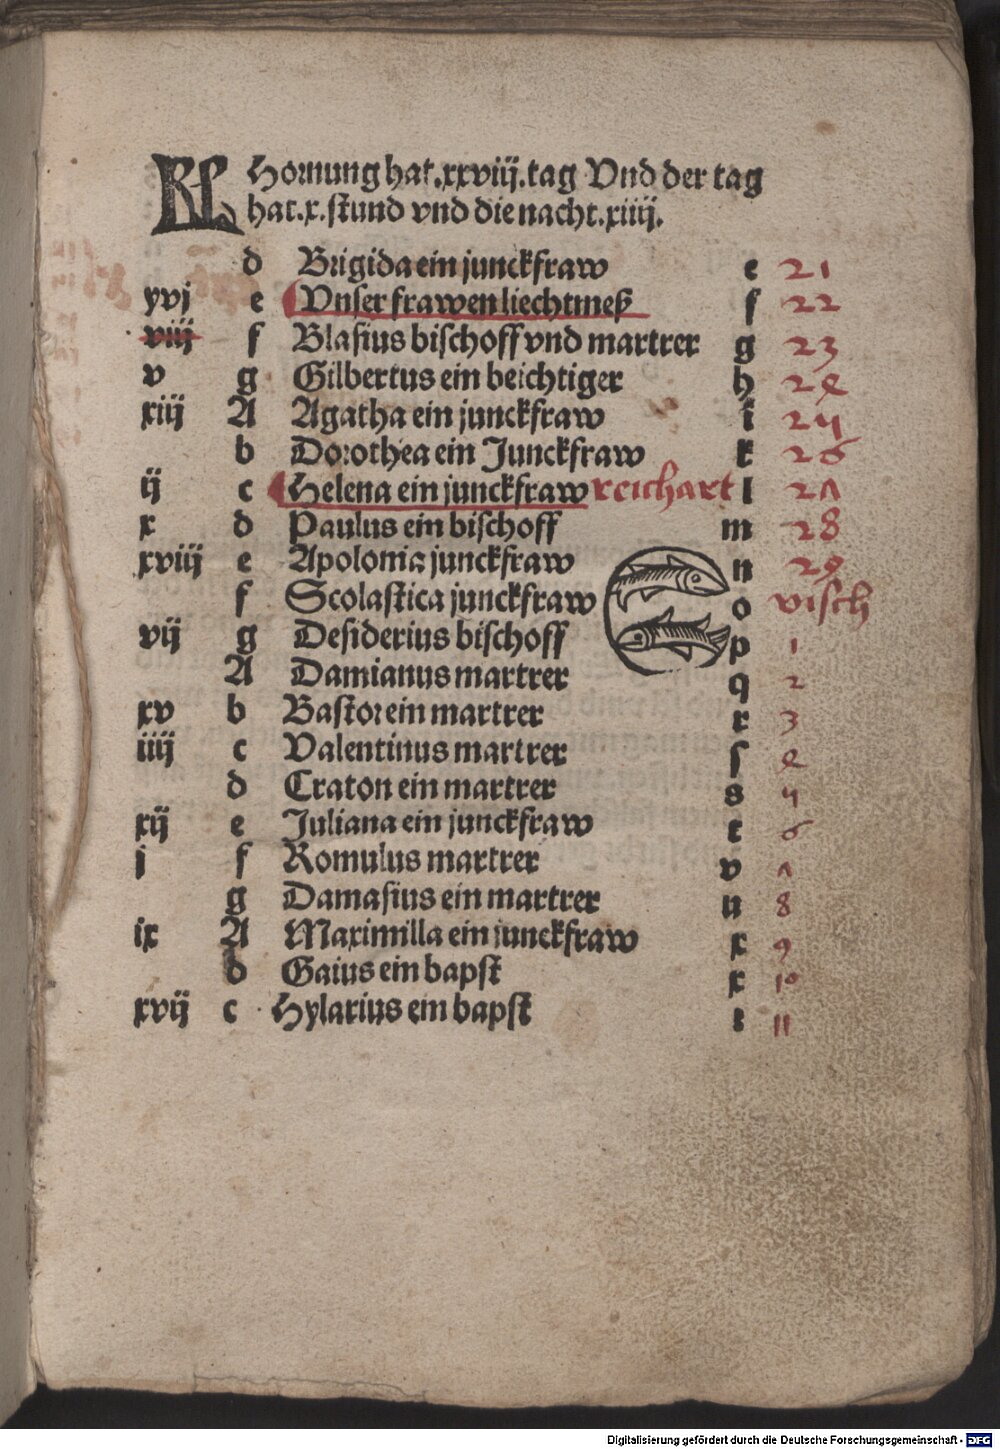 KL Hornung hat.xxviij.tag Vnd der tag
hat.x.stund vnd die nacht.xiiij.
d Brigida ein junckfraw e 21
xvj e Vnser frawen liechtmeß f 22
viij f Blasius bischoff vnd martrer g 23
v g Gilbertus ein beichtiger h 24
xiij A Agatha ein junckfraw i 25
b Dorothea ein Junckfraw k 26
ij c Helena ein junckfraw reichart l 27
x d Paulus ein bischoff m 28
xviij e Apolonia junckfraw n 29
f Scolastica junckfraw o visch
vij g Desiderius bischoff p 1
A Damianus martrer q 2
xv b Bastor ein martrer r 3
iiij c Valentinus martrer ſ 4
d Craton ein martrer s 5
xij e Juliana ein junckfraw t 6
j f Romulus martrer v 7
g Damasius ein martrer u 8
ix A Maximilla ein junckfraw x 9
b Gaius ein bapst x 10
xvij c Hylarius ein bapst t 11
Digitalisierung gefördert durch die Deutsche Forschungsgemeinschaft - DFG